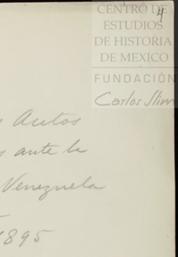 4
CENTRO DE
ESTUDIOS
DE HISTORIA
DE MEXICO
FUNDACIÓN
Carlos Slim
Autos
ante la
Venezuela
1895